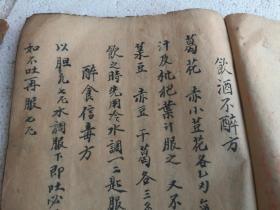 飲酒不醉方
葛花 赤小荳花各乙刃
汁及枇杷葉汁服之 又不
菉豆 赤豆 干葛各三
飲之時先用冷水調一二匙服
醉食信毒方
以胆凡七元水調服下即吐
如不吐再服七元